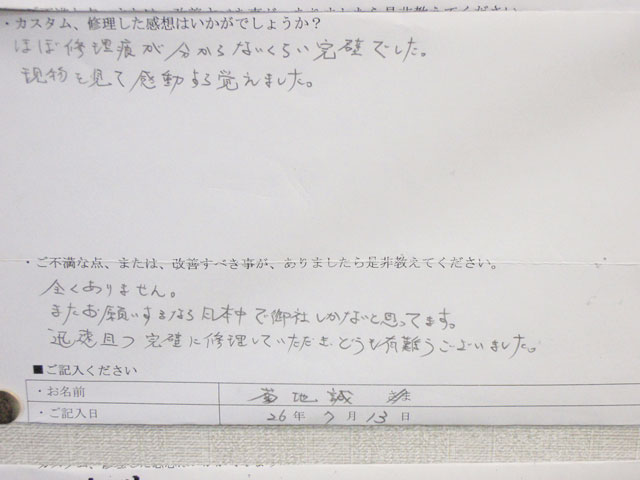 ・カスタム、修理した感想はいかがでしょうか？
ほぼ修理痕が分からないくらい完璧でした。
現物を見て感動すら覚えました。
・ご不満な点、または、改善すべき事が、ありましたら是非教えてください。
全くありません。
またお願いするなら日本中で御社しかないと思ってます。
迅速且つ完璧に修理していただき、どうも有難うございました。
■ご記入ください
・お名前 菊地誠 様
・ご記入日 26年 7月 13日